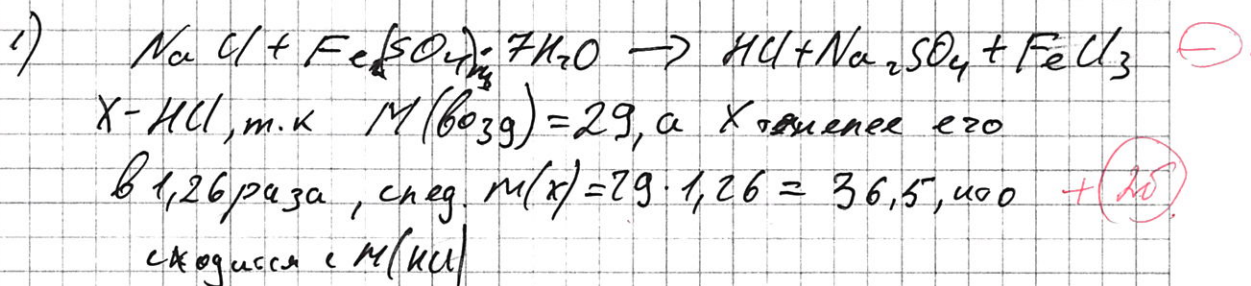 1) NaCl + Fe(SO4)·7H2O → HCl + Na2SO4 + FeCl3 −
X - HCl, т.к M(возд) = 29, а X тяжелее его
в 1,26 раза, след. M(x) = 29 · 1,26 = 36,5, что + 2б
сходится с M(HCl)